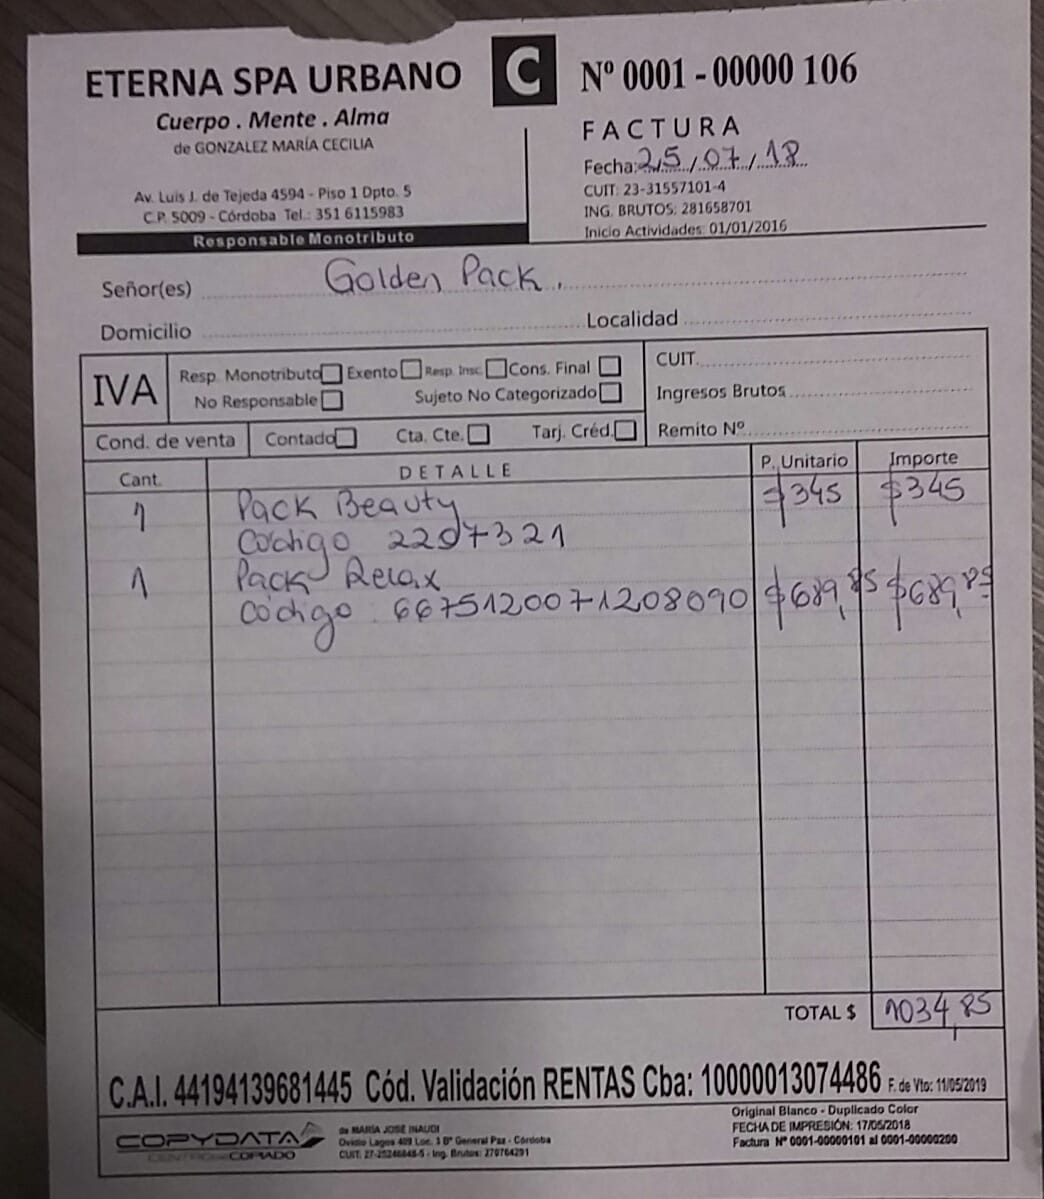 ETERNA SPA URBANO
Cuerpo . Mente . Alma
de GONZALEZ MARÍA CECILIA
Av. Luis J. de Tejeda 4594 - Piso 1 Dpto. 5
C.P. 5009 - Córdoba Tel.: 351 6115983
Responsable Monotributo
C
Nº 0001 - 00000 106
FACTURA
Fecha: 25/07/18
CUIT: 23-31557101-4
ING. BRUTOS: 281658701
Inicio Actividades: 01/01/2016
Señor(es) Golden Pack.
Domicilio Localidad
IVA
Resp. Monotributo Exento Resp. Insc. Cons. Final
No Responsable Sujeto No Categorizado
CUIT.
Ingresos Brutos
Cond. de venta Contado Cta. Cte. Tarj. Créd. Remito Nº
Cant. DETALLE P. Unitario Importe
1 Pack Beauty $345 $345
Código 2207321
1 Pack Relax
Código: 6675120071208090 $689,85 $689,85
TOTAL $ 1034,85
C.A.I. 44194139681445 Cód. Validación RENTAS Cba: 10000013074486 F. de Vto: 11/05/2019
COPYDATA
CENTRO DE COPIADO
de MARÍA JOSÉ INAUDI
Ovidio Lagos 409 Loc. 3 Bº General Paz - Córdoba
CUIT: 27-25246848-5 - Ing. Brutos: 270764291
Original Blanco - Duplicado Color
FECHA DE IMPRESIÓN: 17/05/2018
Factura Nº 0001-00000101 al 0001-00000200